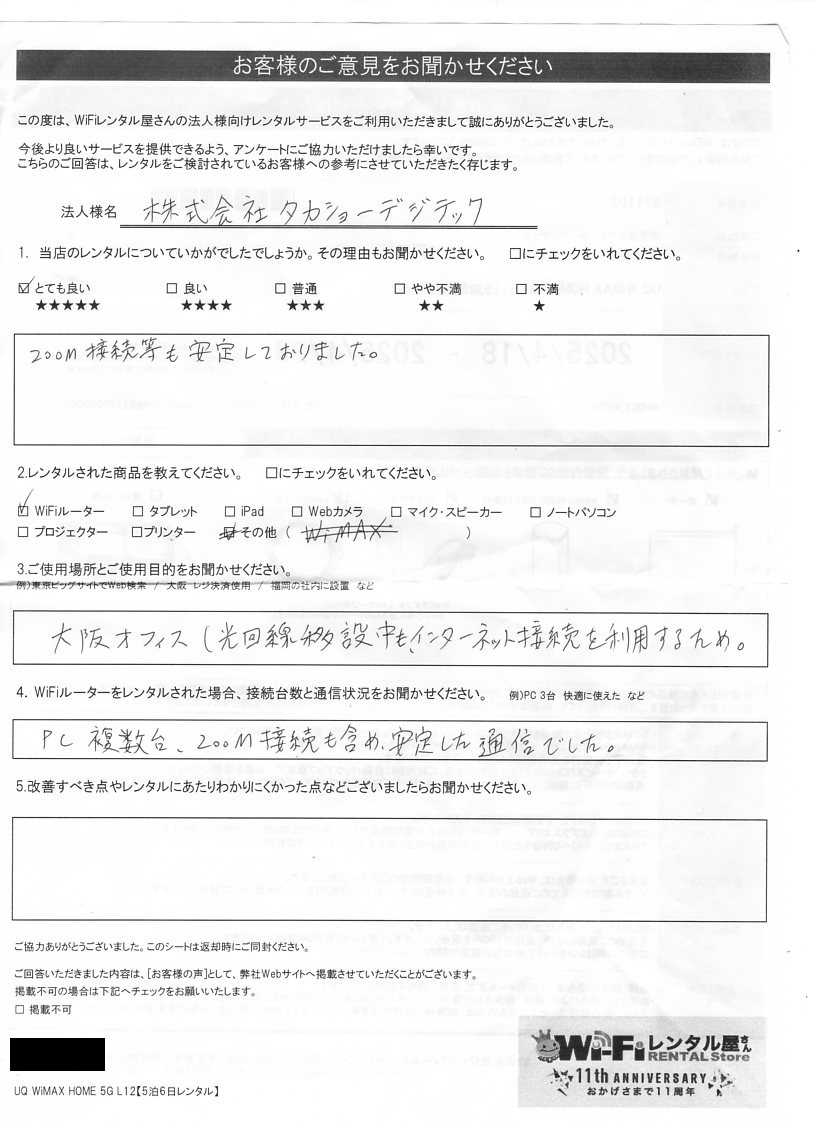 お客様のご意見をお聞かせください
この度は、WiFiレンタル屋さんの法人様向けレンタルサービスをご利用いただきまして誠にありがとうございました。
今後より良いサービスを提供できるよう、アンケートにご協力いただけましたら幸いです。
こちらのご回答は、レンタルをご検討されているお客様への参考にさせていただきたく存じます。
法人様名 株式会社タカショーデジテック
1. 当店のレンタルについていかがでしたでしょうか。その理由もお聞かせください。 □にチェックをいれてください。
☑とても良い □良い □普通 □やや不満 □不満
★★★★★ ★★★★ ★★★ ★★ ★
ZOOM接続等も安定しておりました。
2.レンタルされた商品を教えてください。 □にチェックをいれてください。
☑ WiFiルーター □ タブレット □ iPad □ Webカメラ □ マイク・スピーカー □ ノートパソコン
□ プロジェクター □プリンター ☑その他 ( WiMAX )
3.ご使用場所とご使用目的をお聞かせください。
例)東京ビッグサイトでWeb検索 / 大阪 レジ決済使用 / 福岡の社内に設置 など
大阪オフィス(光回線移設中も、インターネット接続を利用するため。
4. WiFiルーターをレンタルされた場合、接続台数と通信状況をお聞かせください。 例)PC 3台 快適に使えた など
PC 複数台、ZOOM接続も含め、安定した通信でした。
5.改善すべき点やレンタルにあたりわかりにくかった点などございましたらお聞かせください。
ご協力ありがとうございました。このシートは返却時にご同封ください。
ご回答いただきました内容は、[お客様の声]として、弊社Webサイトへ掲載させていただくことがございます。
掲載不可の場合は下記へチェックをお願いいたします。
□ 掲載不可
Wi-Fiレンタル屋さん
RENTAL Store
11th ANNIVERSARY
おかげさまで11周年
UQ WiMAX HOME 5G L12【5泊6日レンタル】